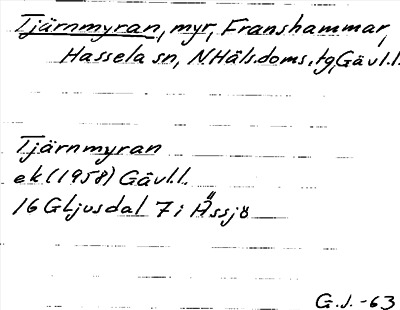 Tjärnmyran, myr, Franshammar,
Hassela sn, N.Häls.doms.tg, Gävl.l.
Tjärnmyran
ek (1958) Gävl.l.
16 G Ljusdal 7 i Hässjö
G.J. -63